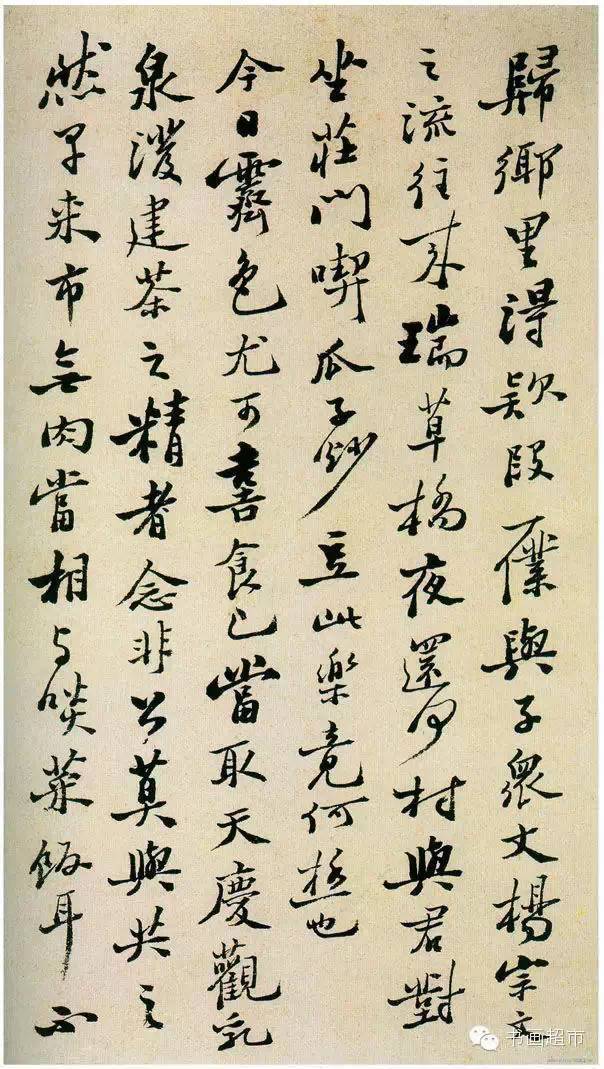 歸鄉里得款段一僕與子衆丈楊宗文
之流往來瑞草橋夜還何村與君對
坐莊門喫瓜子炒豆此樂竟何極也
今日霽色尤可喜食已當取天慶觀乳
泉潑建茶之精者念非公莫與共之
然早来市無肉當相与啖菜飯耳不
书画超市